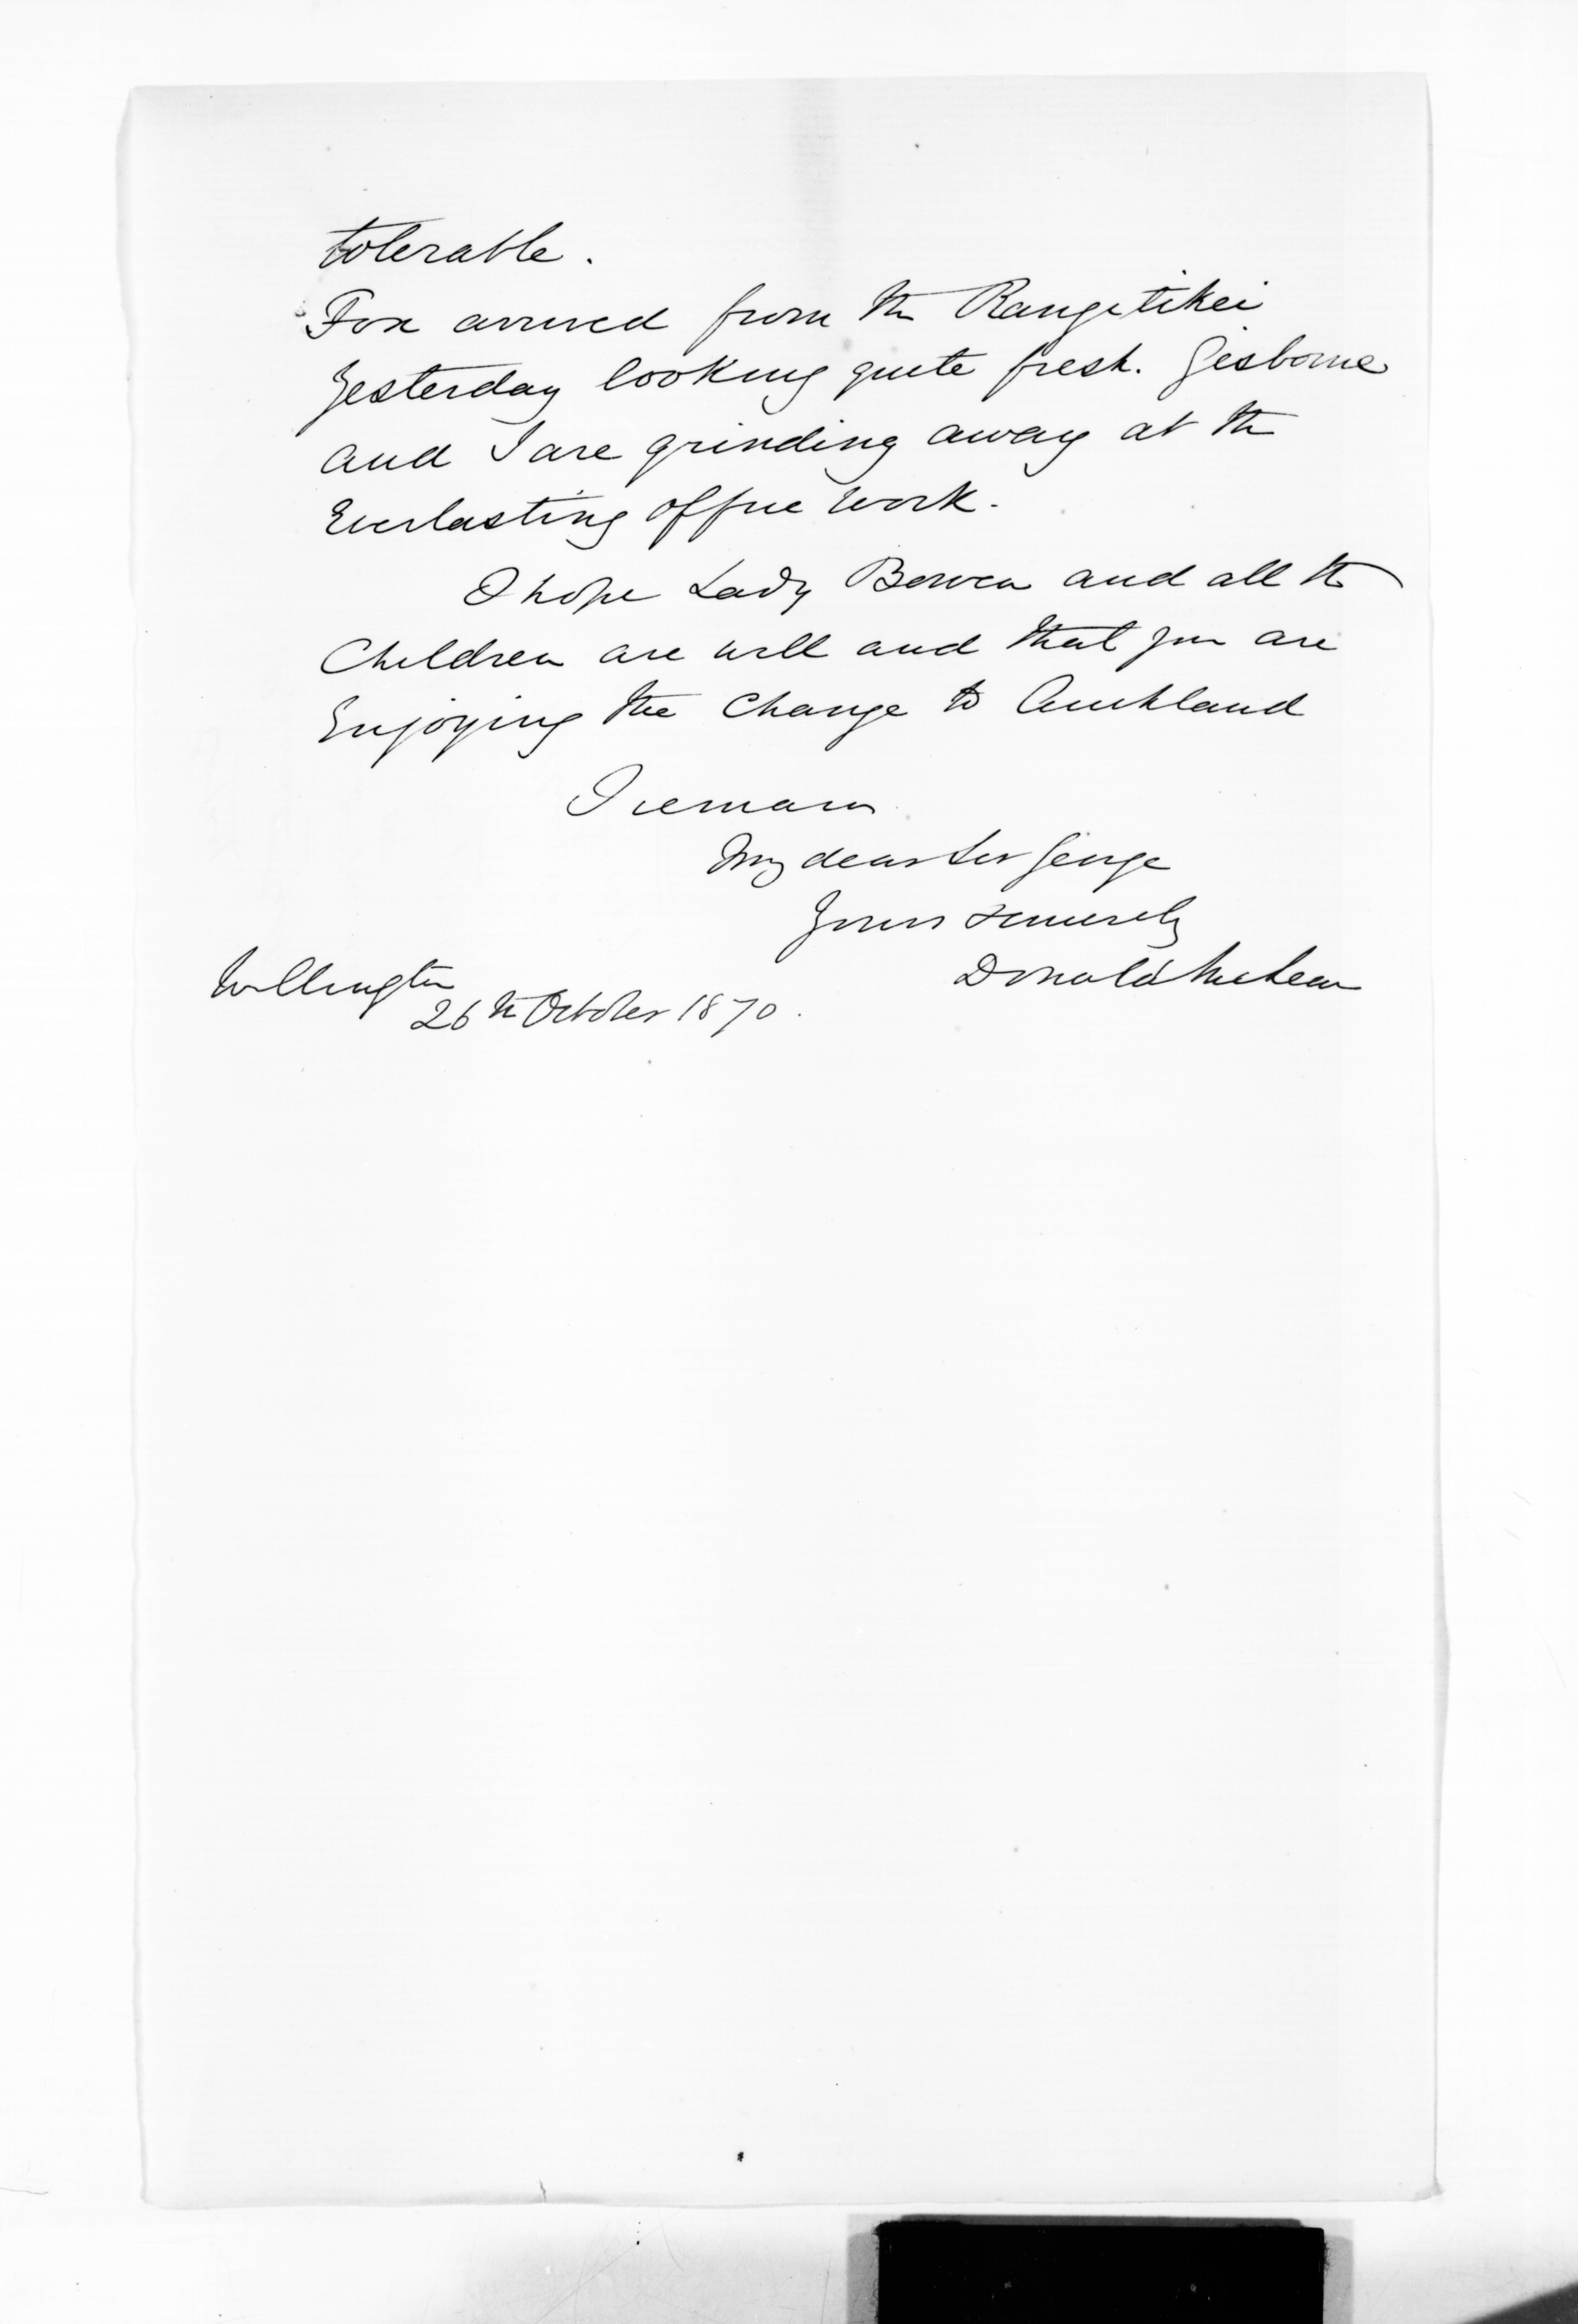 tolerable.
Fox arrived from the Rangitikei
Yesterday looking quite fresh. Gisborne
and I are grinding away at the
Everlasting office work.
I hope Lady Bowen and all the
Children are well and that you are
Enjoying the Change to Auckland
I remain
My dear Sir George
Yours sincerely
Donald McLean
Wellington
26th October 1870.